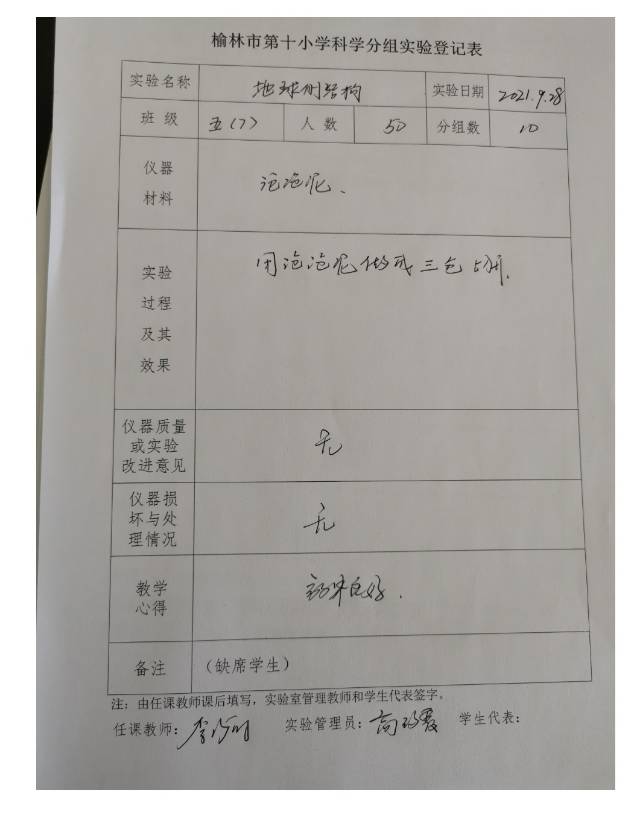 榆林市第十小学科学分组实验登记表
实验名称 地球的结构 实验日期 2021.9.28
班级 五(7) 人数 50 分组数 10
仪器
材料
泡泡泥、
实验
过程
及其
效果
用泡泡泥做成三色
仪器质量
或实验
改进意见
无
仪器损
坏与处
理情况
无
教学
心得
效果良好.
备注 (缺席学生)
注：由任课教师课后填写，实验室管理教师和学生代表签字。
任课教师： 实验管理员： 学生代表：